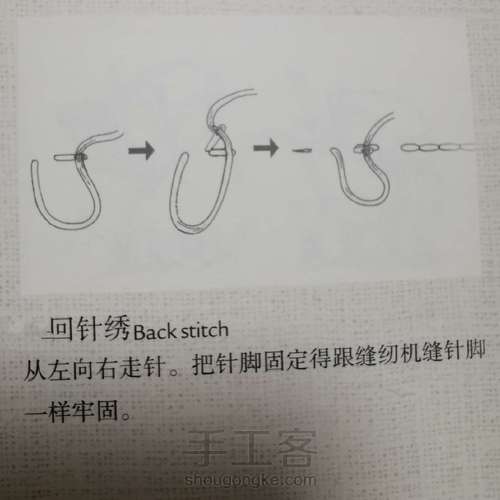 回针绣Back stitch
从左向右走针。把针脚固定得跟缝纫机缝针脚
一样牢固。
手工客
shougongke.com